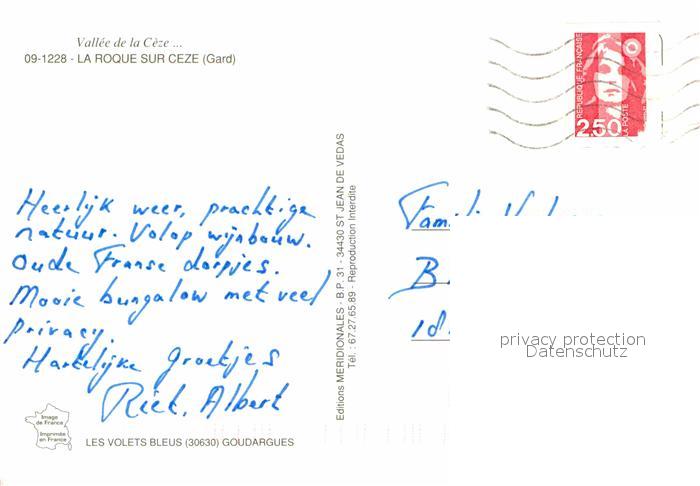 Vallée de la Cèze ...
09-1228 - LA ROQUE SUR CEZE (Gard)
Heerlijk weer, prachtige
natuur. Volop wijnbouw.
Oude Franse dorpjes.
Mooie bungalow met veel
privacy.
Hartelijke groetjes
Riet, Albert
Image
de France
Imprimée
en France
LES VOLETS BLEUS (30630) GOUDARGUES
Editions MERIDIONALES - B.P. 31 - 34430 ST JEAN DE VEDAS
Tél. : 67.27.65.89 - Reproduction Interdite
REPUBLIQUE FRANÇAISE
2,50
LA POSTE
Fam.
B.
id.
privacy protection
Datenschutz